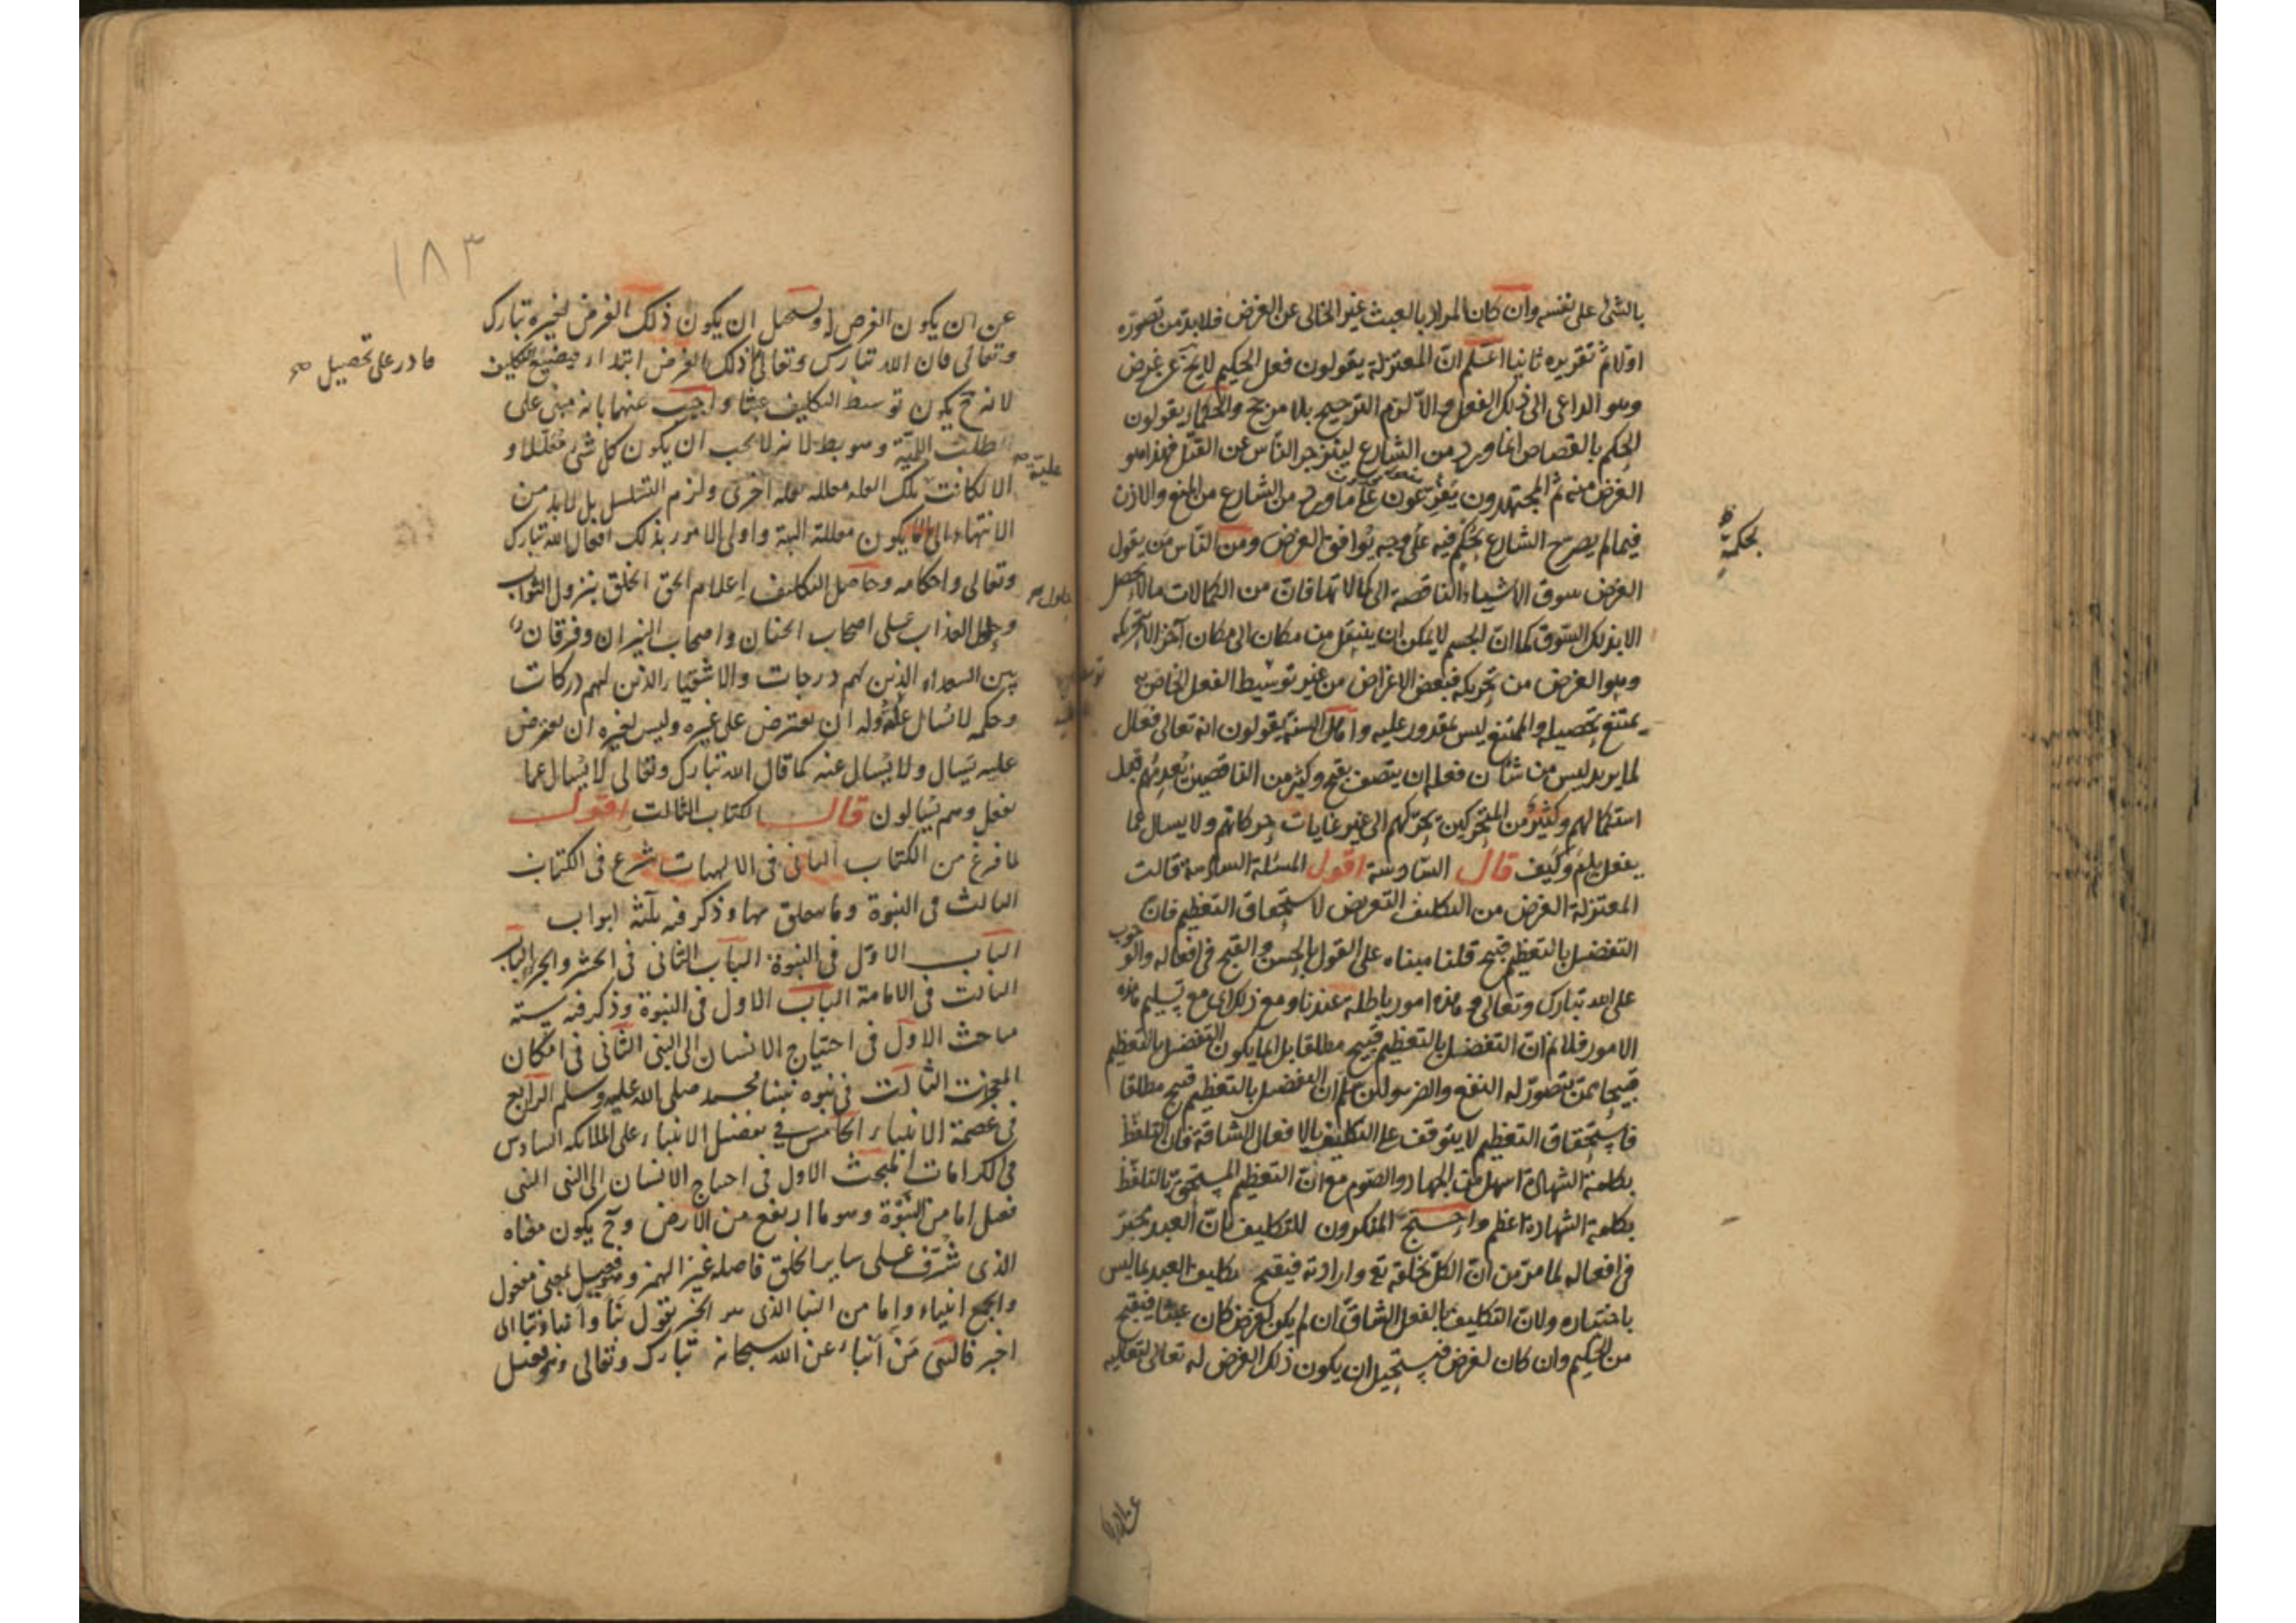 بالشئ على نفسه وان كان المراد بالعبث غير الخالى عن الغرض فلا بد من تصوره
اولا ثم تقريره ثانيا اعلم ان المعتزلة يقولون فعل الحكيم لا يخ عن غرض
وهو الداعى الى ذلك الفعل والا لزم الترجيح بلا مرجح والحكماء يقولون
الحكم بالقصاص انما ورد من الشارع لينزجر الناس عن القتل فهذا هو
الغرض منه ثم المجتهدون يفرعون على ما ورد من الشارع من المنع والاذن
فيما لم يصرح الشارع بحكم فيه على وجه يوافق الغرض ومن الناس من يقول
بحكمة
الغرض سوق الاشياء الناقصة الى كمالاتها فان من الكمالات ما لا يحصل
الا بذلك السوق كما ان الجسم لا يمكن ان ينتقل من مكان الى مكان آخر الا بتحريكه
وهو الغرض من تحريكه فبعض الاغراض من غير توسيط الفعل الخاص به
يمتنع تحصيله والممتنع ليس بمقدور عليه واما اهل السنة يقولون انه تعالى فعال
لما يريد ليس من شأن فعله ان يتصف بقبح وكثير من الناقصين يعدمهم قبل
استكمالهم وكثير من المتحركين يحركهم الى غير غايات حركاتهم ولا يسال عما
يفعل بلم وكيف قال السادسة اقول المسئلة السادسة قالت
المعتزلة الغرض من التكليف التعريض لاستحقاق التعظيم فان
التفضل بالتعظيم قبيح قلنا مبناه على القول بالحسن والقبح فى افعاله والوجوب
على الله تبارك وتعالى وهذه امور باطلة عندنا ومع ذلك اى مع تسليم هذه
الامور فلا نم ان التفضل بالتعظيم قبيح مطلقا بل انما يكون التفضل بالتعظيم
قبيحا ممن يتصور له النفع والضر ولئن سلم ان التفضل بالتعظيم قبيح مطلقا
فاستحقاق التعظيم لا يتوقف على التكليف بالافعال الشاقة فان التلفظ
بكلمة الشهادة اسهل من الجهاد والصوم مع ان التعظيم المستحق بالتلفظ
بكلمة الشهادة اعظم واحتج المنكرون للتكليف بان العبد مجبر
فى افعاله لما مر من ان الكل بخلقه تع وارادته فيقبح تكليف العبد بما ليس
باختياره ولان التكليف بالفعل الشاق ان لم يكن لغرض كان عبثا فيقبح
من الحكيم وان كان لغرض فيستحيل ان يكون ذلك الغرض له تعالى لتعاليه
١٨٣
عن ان يكون الغرض له ويستحيل ان يكون ذلك الغرض لغيره تبارك
وتعالى فان الله تبارك وتعالى ذلك الغرض ابتداء فيضيع التكليف
قادر على تحصيل صح
لانه ح يكون توسيط التكليف عبثا واجيب عنهما بانه مبنى على
طلب اللمية وهو بط لانه لا يجب ان يكون كل شئ معللا و
علية صح
الا لكانت تلك العلة معللة بعلة اخرى ولزم التسلسل بل لا بد من
الانتهاء الى ما لا يكون معللة البتة واولى الامور بذلك افعال الله تبارك
وتعالى واحكامه وحاصل التكليف اعلام الحق الخلق بنزول الثواب
وحلول العذاب على اصحاب الجنان واصحاب النيران وفرقان
بين السعداء الذين لهم درجات والاشقياء الذين لهم دركات
وحكمه لا يسال عنه وله ان يعترض على غيره وليس لغيره ان يعترض
عليه يسال ولا يسال عنه كما قال الله تبارك وتعالى لا يسال عما
يفعل وهم يسالون قال الكتاب الثالث اقول
لما فرغ من الكتاب الثانى فى الالهيات شرع فى الكتاب
الثالث فى النبوة وما يتعلق بها وذكر فيه ثلثة ابواب
الباب الاول فى النبوة الباب الثانى فى الحشر والجزاء الباب
الثالث فى الامامة الباب الاول فى النبوة وذكر فيه ستة
مباحث الاول فى احتياج الانسان الى النبى الثانى فى امكان
المعجزات الثالث فى نبوة نبينا محمد صلى الله عليه وسلم الرابع
فى عصمة الانبياء الخامس فى تفضيل الانبياء على الملائكة السادس
فى الكرامات المبحث الاول فى احتياج الانسان الى النبى النبى
فعيل اما من النبوة وهو ما ارتفع من الارض وح يكون معناه
الذى شرف على ساير الخلق فاصله غير الهمز وهو فعيل بمعنى مفعول
والجمع انبياء واما من النبا الذى هو الخبر تقول نبا وانبا ونبا اى
اخبر فالنبى من انبا عن الله سبحانه تبارك وتعالى وهو فعيل